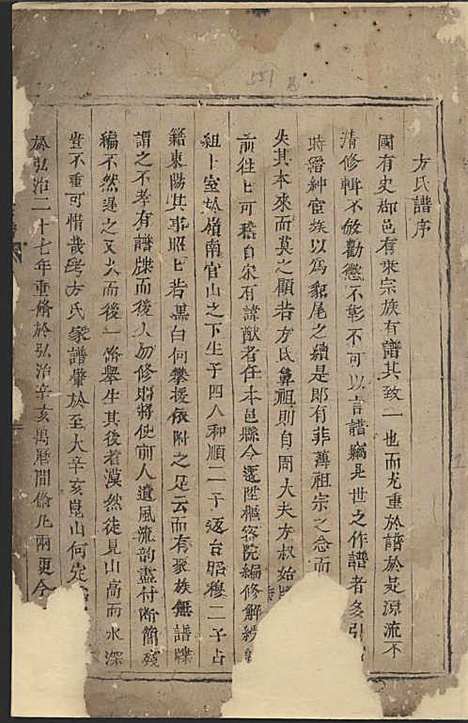 方氏譜序
國有史郡邑有乘宗族有譜其致一也而尤重於譜於是源流不
清修輯不敘勸懲不彰不可以言譜竊見世之作譜者多引
時縉紳宦族以為貂尾之續是即有非薄祖宗之念而
失其本來而莫之顧若方氏鼻祖則自周大夫方叔始
前往亡可稽自宋有諱猷者任本邑縣令遷陞樞密院編修解
組卜室於嶺南官山之下生子四人和順二子返台昭穆二子占
籍東陽其事昭昭若黑白何攀援依附之足云而有家族無譜牒
謂之不孝有譜牒而後人勿修則將使前人遺風流韵盡付斷簡殘
編不然遲之又久而後一脩舉生其後者漠然徒見山高而水深
豈不重可惜哉 方氏家譜肇於至大辛亥崑山何
於弘治二十七年重脩於弘治辛亥萬曆間脩几兩更今
551